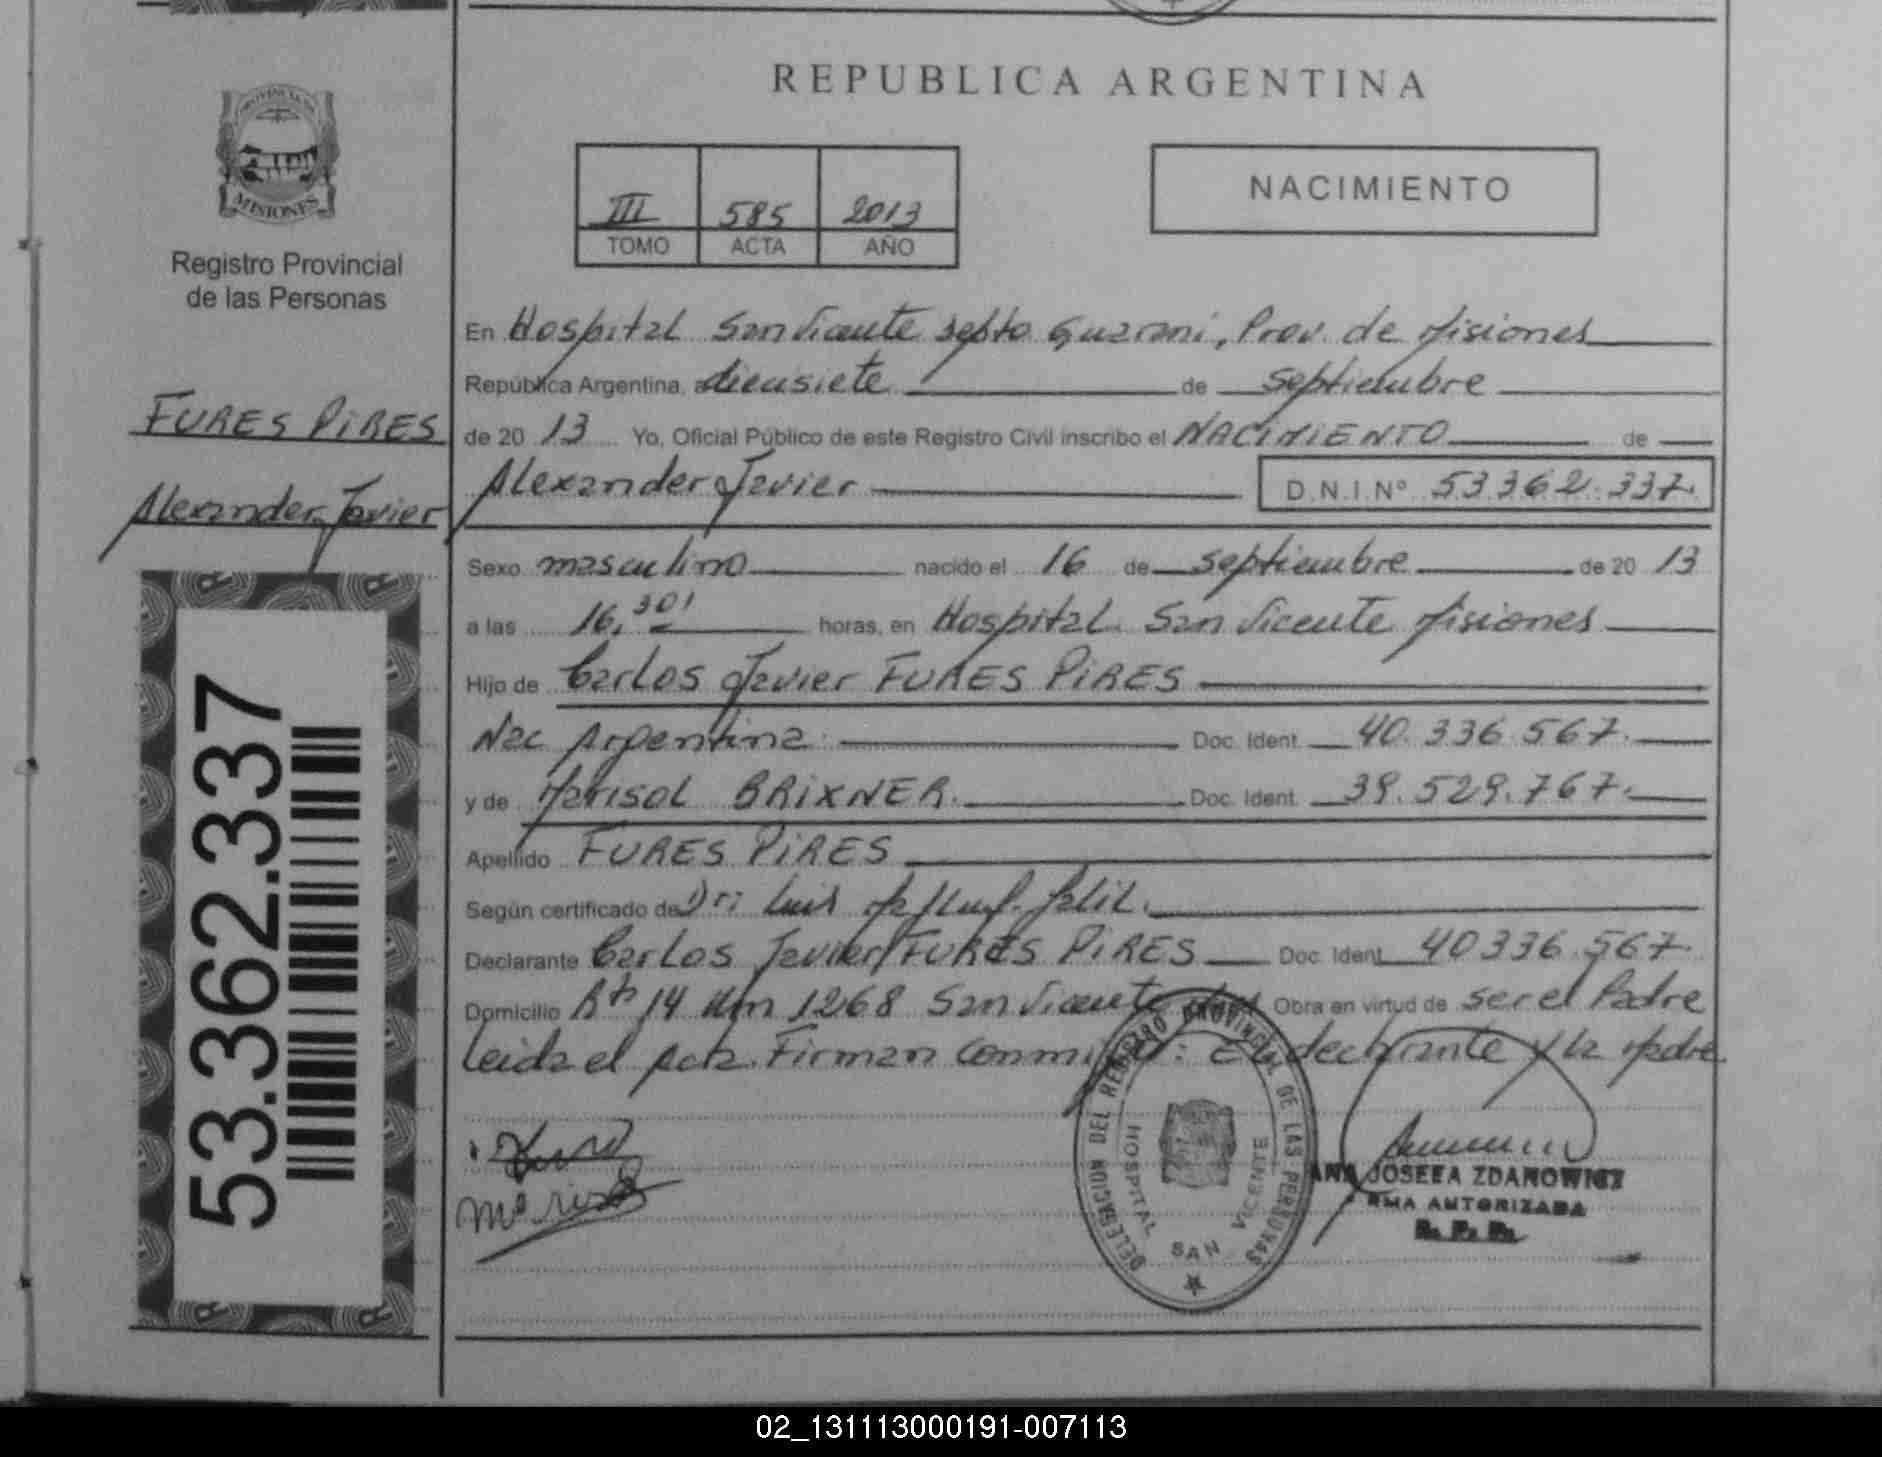 REPUBLICA ARGENTINA
PROVINCIA DE
MISIONES
Registro Provincial
de las Personas
III 585 2013
TOMO ACTA AÑO
NACIMIENTO
FURES PIRES
Alexander Javier
53.362.337
En Hospital San Vicente Guarani, Prov. de Misiones
República Argentina, a diecisiete de septiembre
de 20 13 Yo, Oficial Público de este Registro Civil inscribo el NACIMIENTO de
Alexander Javier D.N.I.Nº 53 362.337.
Sexo masculino nacido el 16 de septiembre de 20 13
a las 16,30' horas, en Hospital San Vicente Misiones
Hijo de Carlos Javier FURES PIRES
Nac Argentina Doc. Ident. 40.336.567.
y de Marisol BRIXNER. Doc. Ident. 39.529.767.
Apellido FURES PIRES
Según certificado de Dr: Luis
Declarante Carlos Javier FURES PIRES Doc. Ident. 40336.567.
Domicilio 14 Km 1268 San Vicente Obra en virtud de ser el Padre
Leida el acta. Firman conmigo: El declarante y la Madre
DELEGACION DEL REGISTRO PROVINCIAL DE LAS PERSONAS
HOSPITAL SAN VICENTE
ANA JOSEFA ZDANOWICZ
FIRMA AUTORIZADA
R. P. P.
02_131113000191-007113